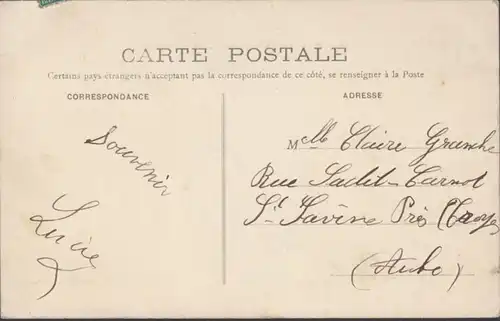 CARTE POSTALE
Certains pays étrangers n'acceptant pas la correspondance de ce côté, se renseigner à la Poste
CORRESPONDANCE
ADRESSE
Souvenir
Lucie
Melle Claire Granche
Rue Sadit-Carnot
St Savine Près Troyes
(Aube)